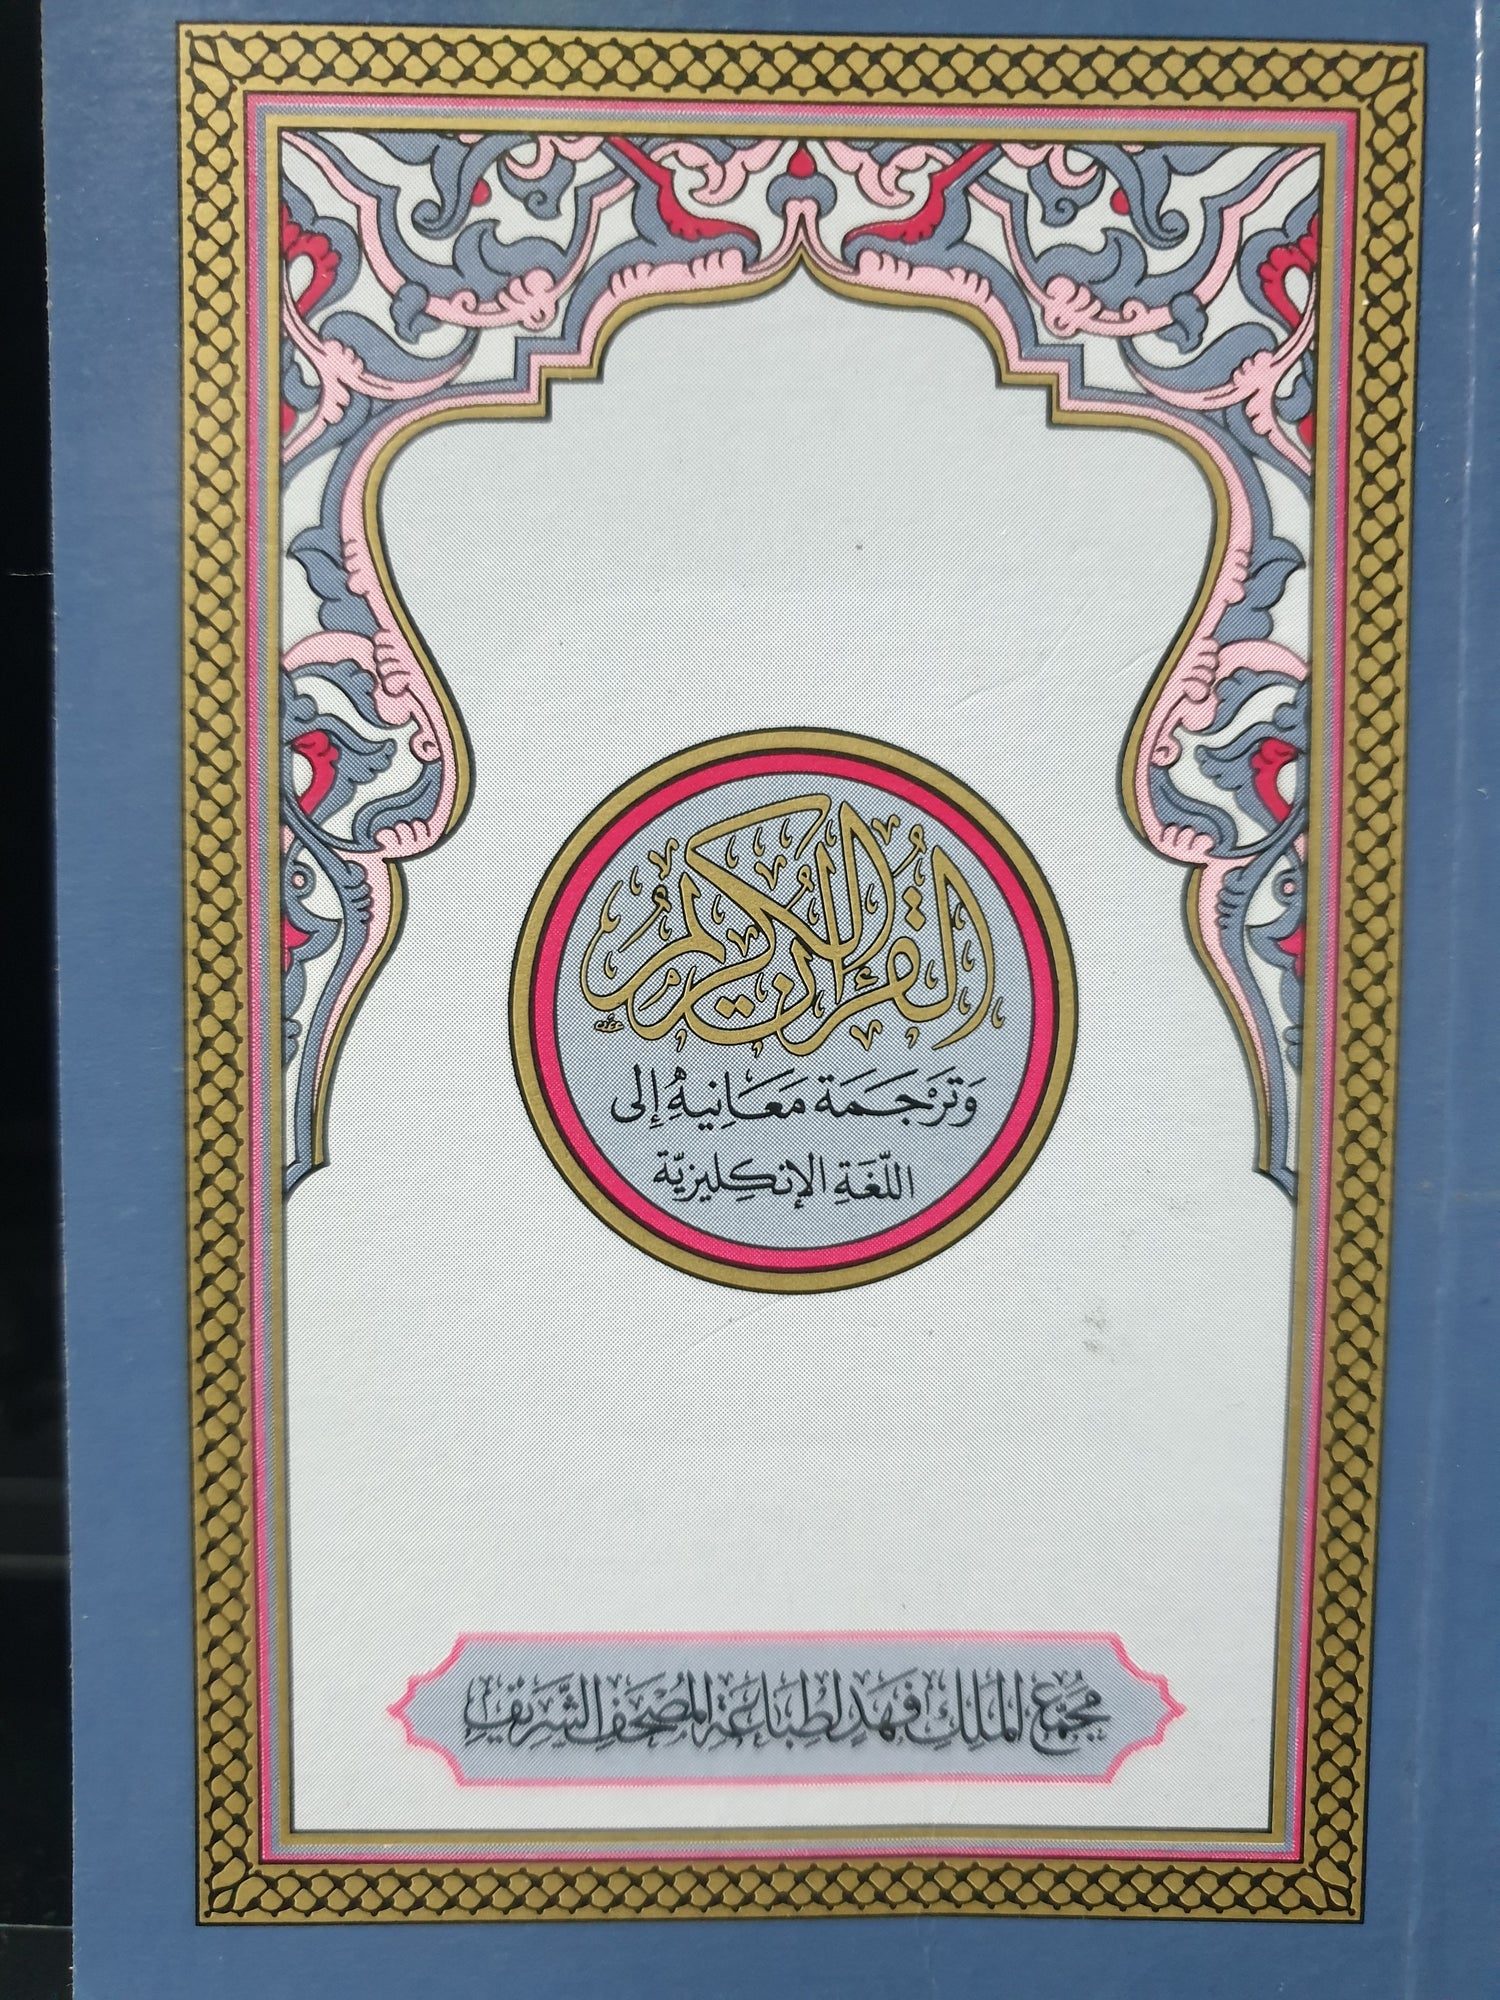 القُرْآنُ الكَرِيمُ
وَتَرْجَمَة مَعَانِيهُ إِلى
اللّغَةِ الإنكِليزيّة
مُجَمَّعُ المَلِكِ فَهَد لِطِبَاعَةِ المُصْحَفِ الشَّرِيفِ